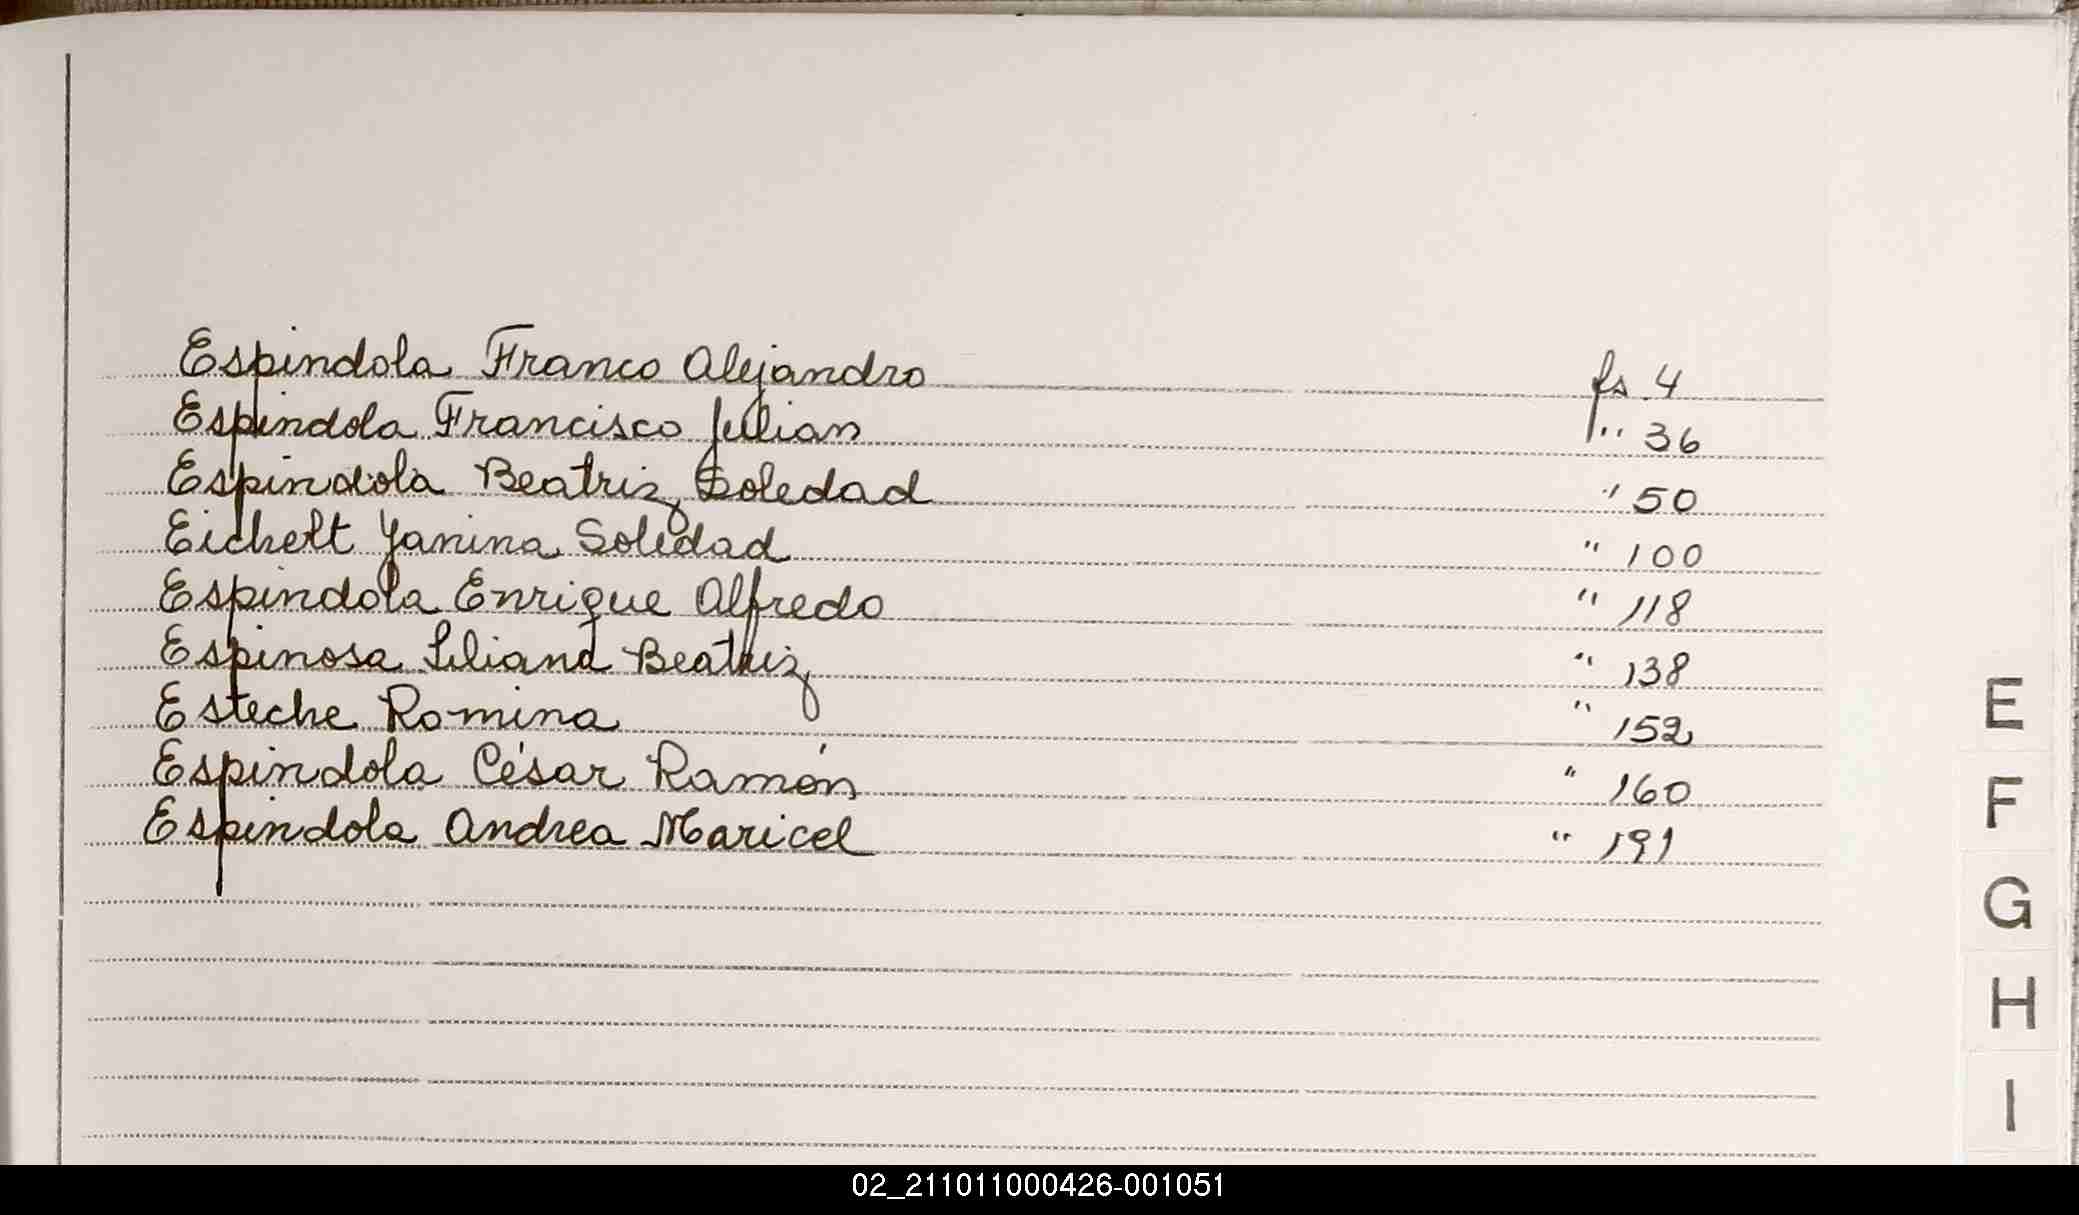 Espindola Franco Alejandro fs 4
Espindola Francisco Julian " 36
Espindola Beatriz Soledad " 50
Eichelt Yanina Soledad " 100
Espindola Enrique Alfredo " 118
Espinosa Liliana Beatriz " 138
Esteche Romina " 152
Espindola César Ramón " 160
Espindola Andrea Maricel " 191
E
F
G
H
I
02_211011000426-001051